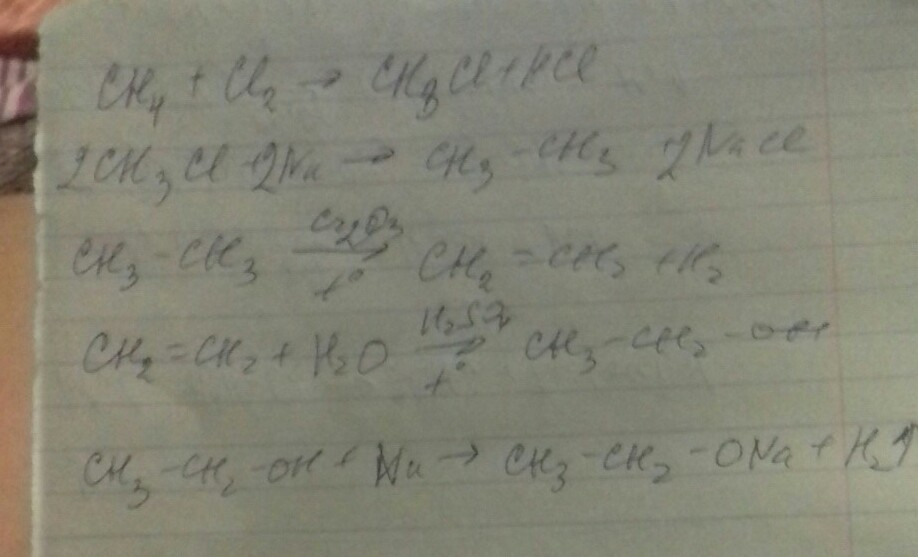 CH₄ + Cl₂ → CH₃Cl + HCl
2CH₃Cl + 2Na → CH₃ - CH₃ 2NaCl
CH₃ - CH₃ Cr₂O₃ → t° CH₂ = CH₂ + H₂
CH₂ = CH₂ + H₂O H₂SO₄ → t° CH₃ - CH₂ - OH
CH₃ - CH₂ - OH + Na → CH₃ - CH₂ - ONa + H₂↑